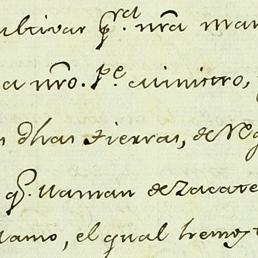 ultivar pr. nrã man
a nro. Pe. Ministro,
s dhas tierras, de Reg
q. llaman de Zacate
llamo, el qual hemos